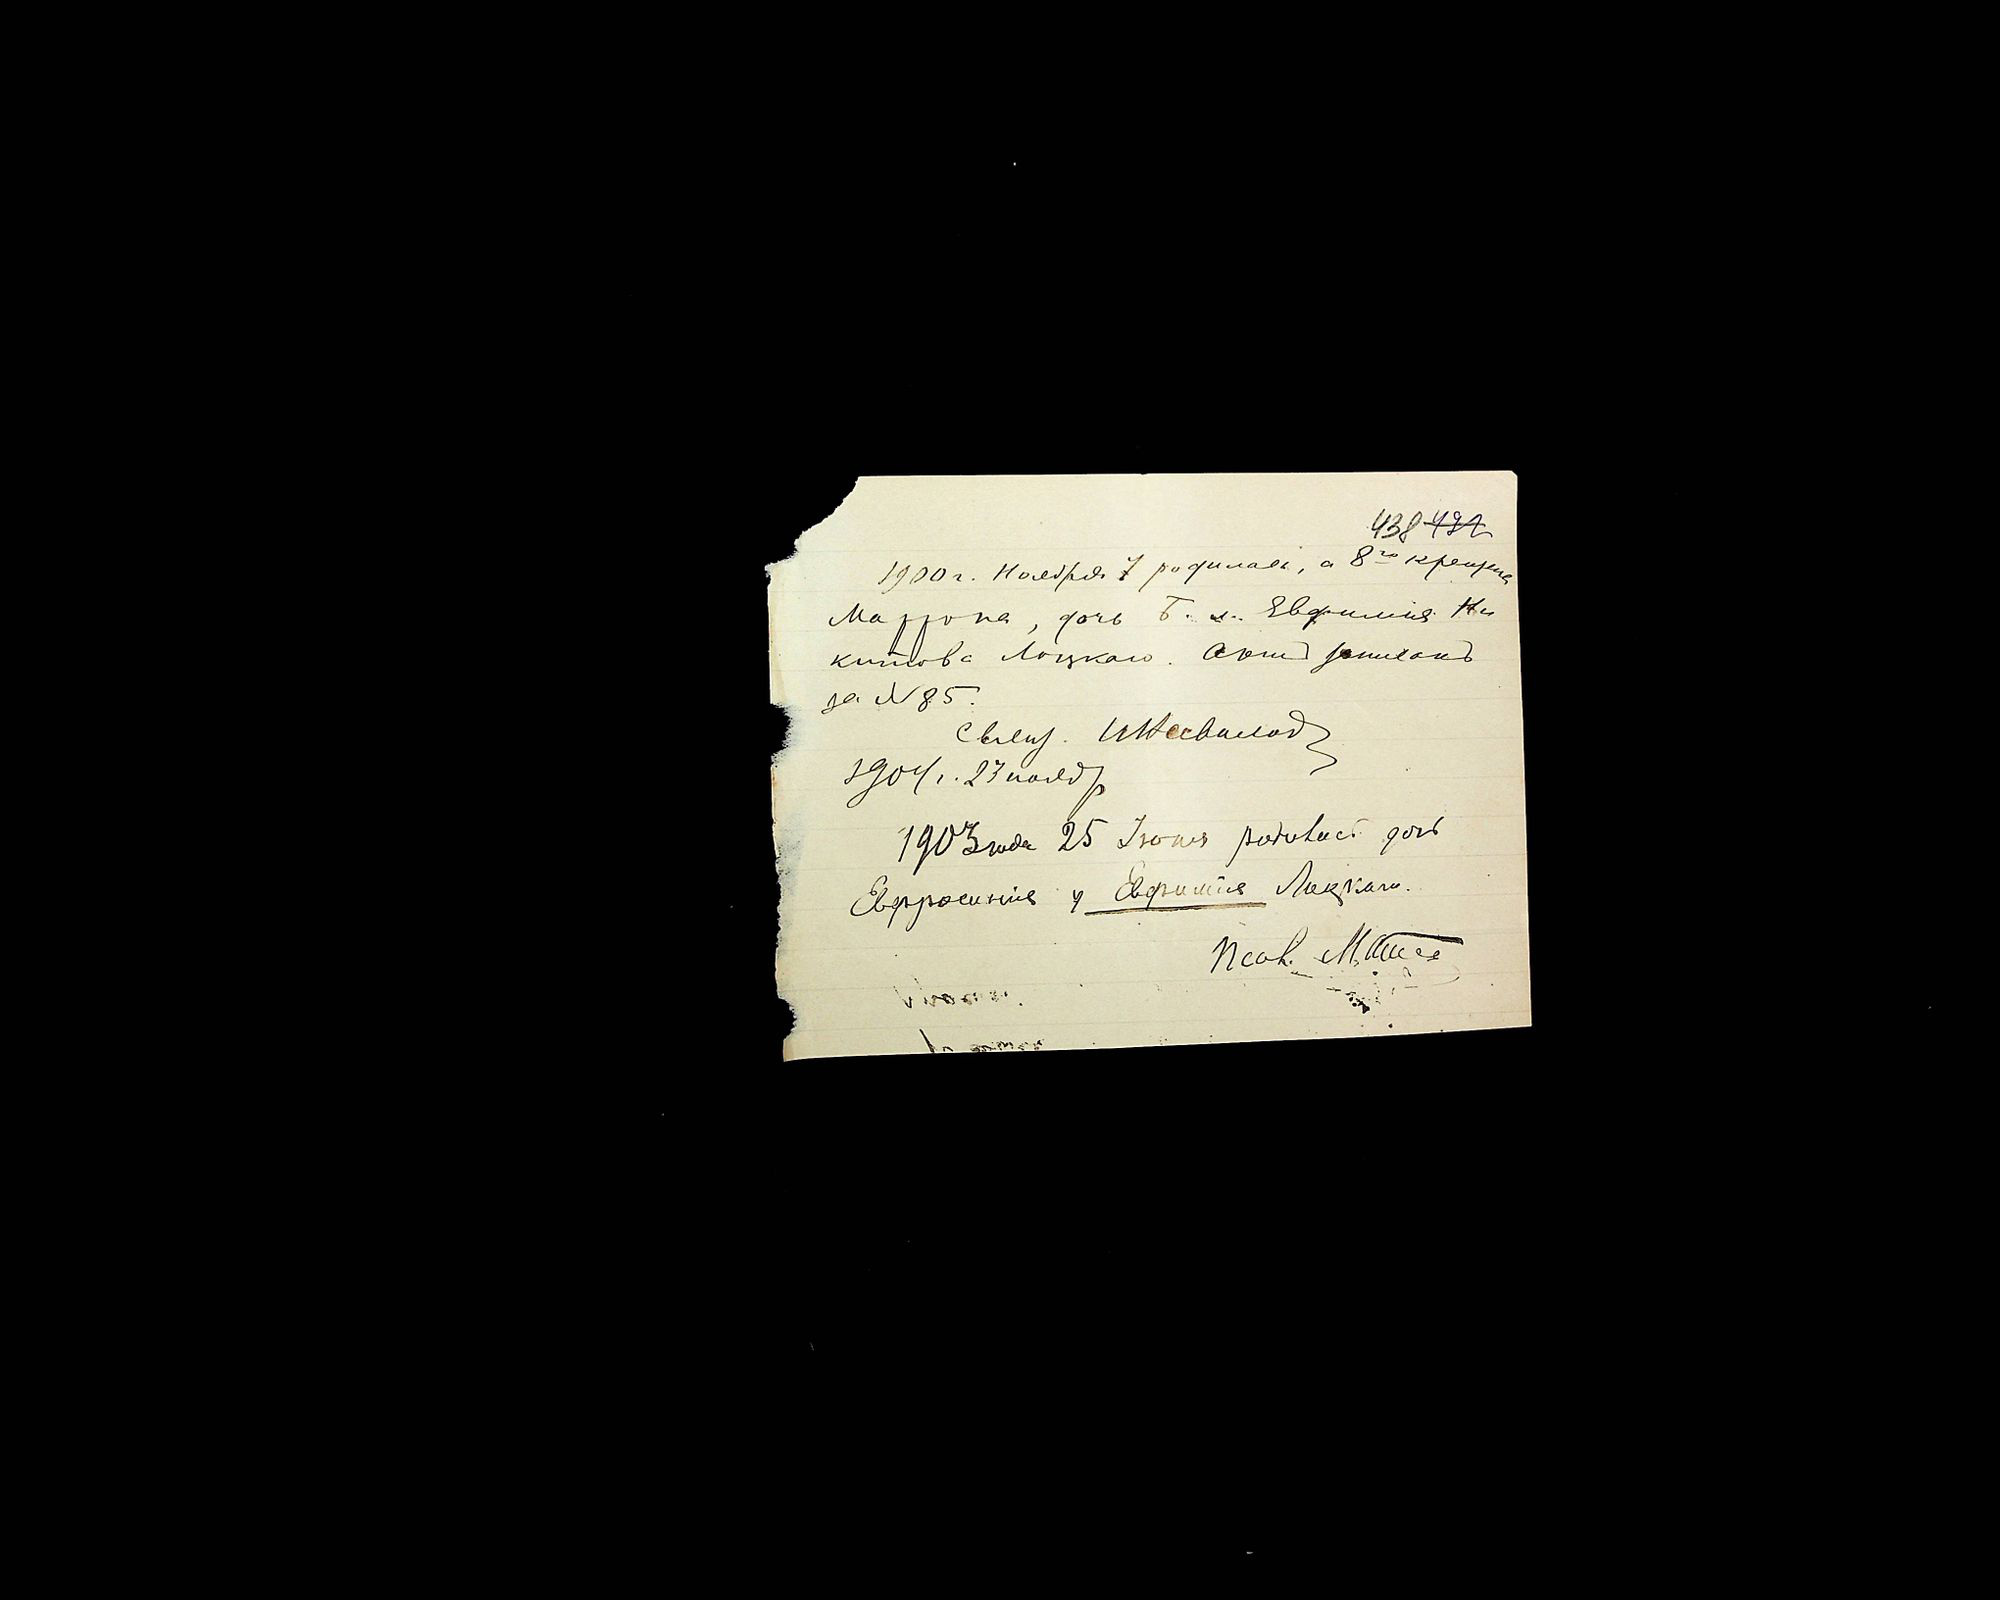 438 492
1900 г. Ноября 7 родилась, а 8го крещена
Матрона, дочь Б. м. Евфимия Ни
китова Лацкаго. Актъ записанъ
за N 85.
Свящ.
1904 г. 23 нояб
1903 года 25 Iюня родилась дочь
Евфросинiя у Евфимiя Лацкаго.
Псал.